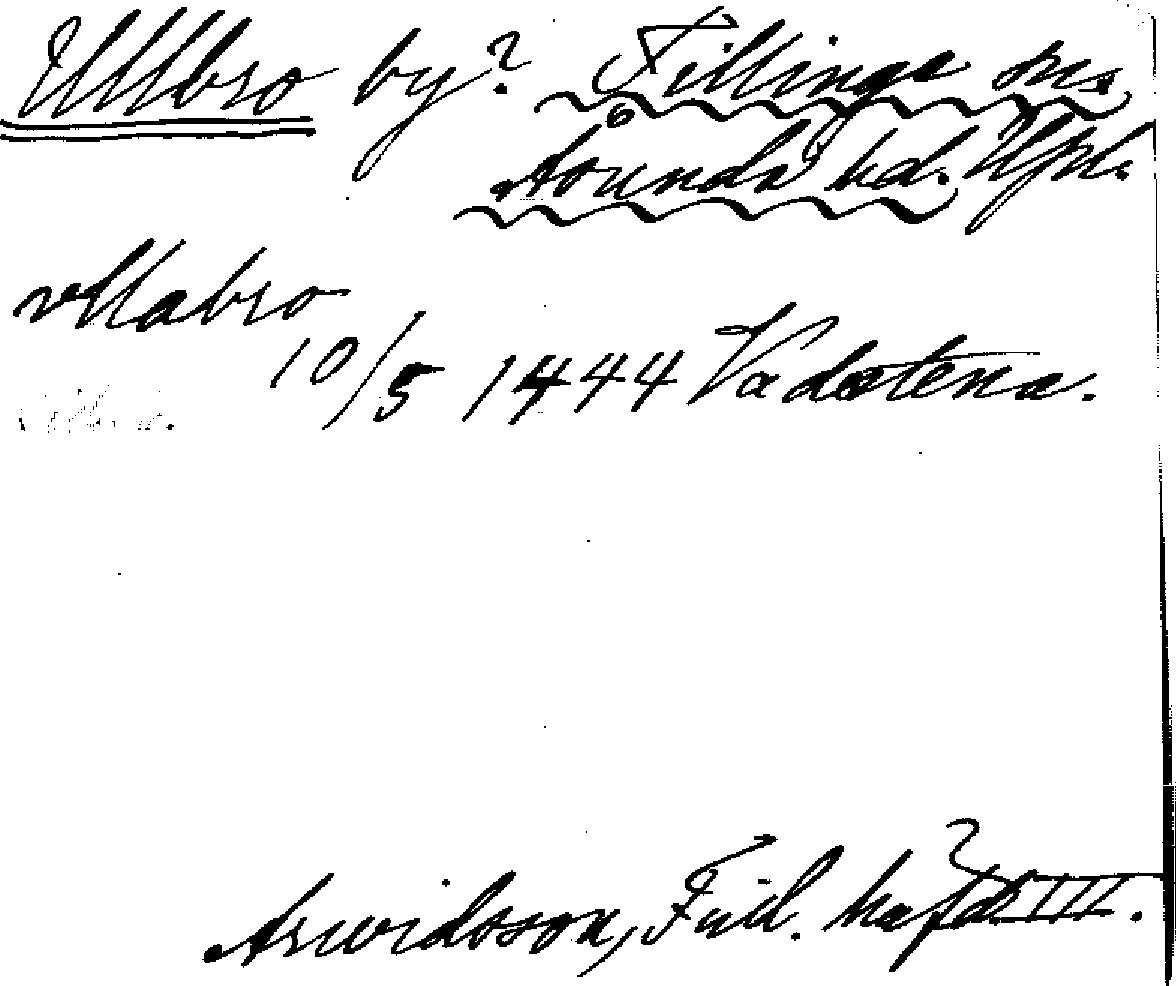 Ullbro by? Tillinge sns
Åsunda hd. Upl.
vllabro
10/5 1444 Vadstena.
Arwidsson, Finl. häfd III.